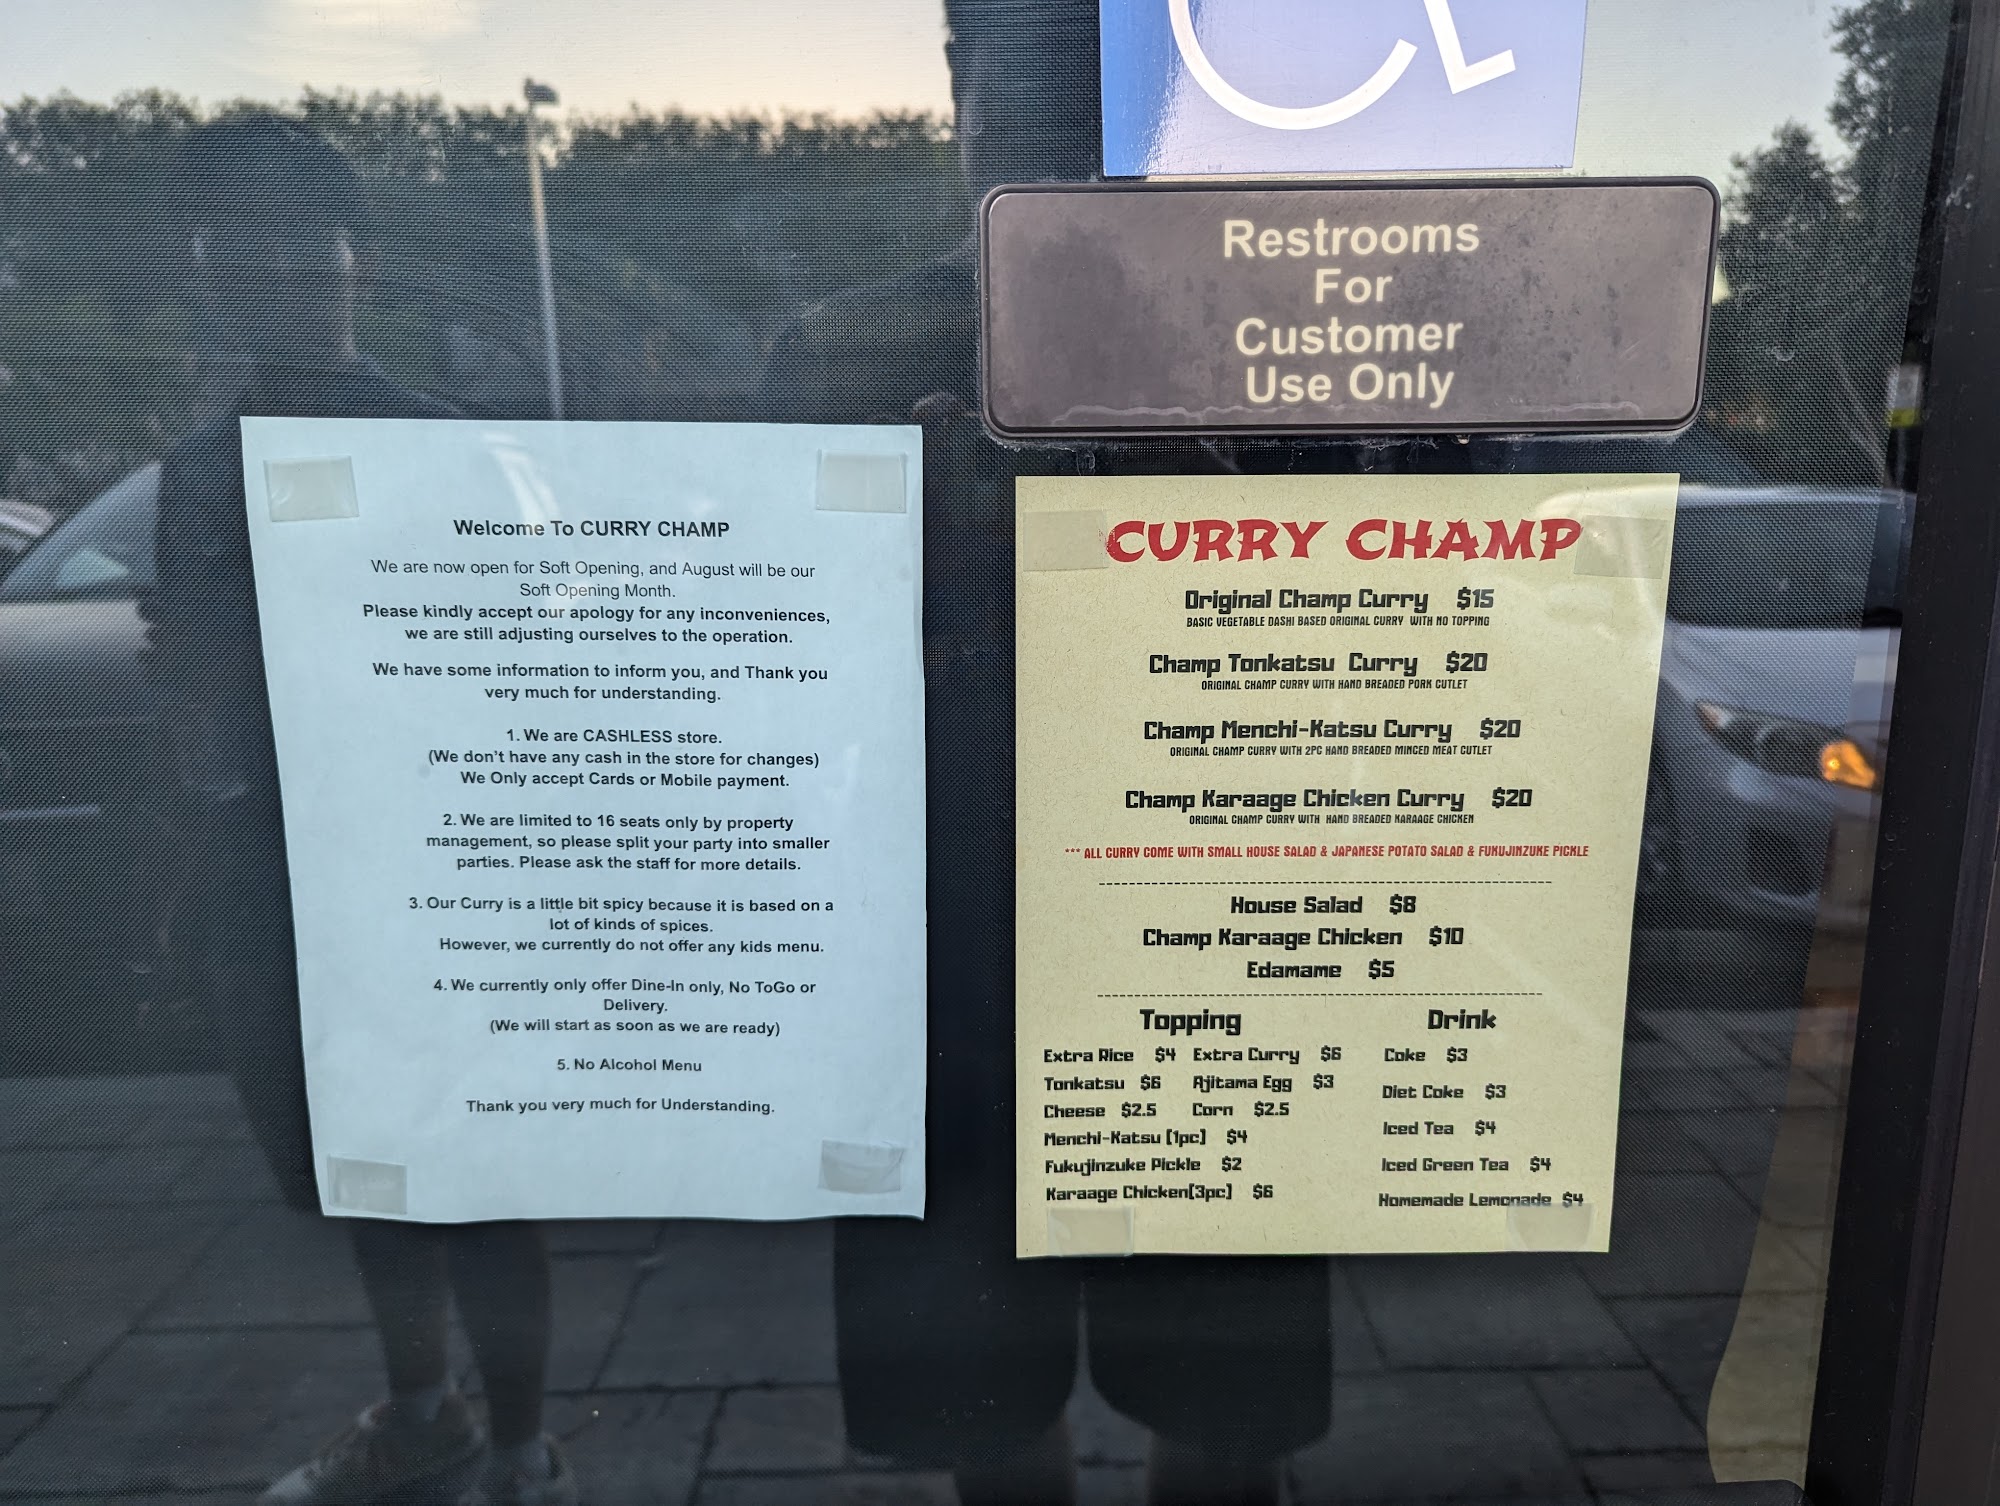 Restrooms
For
Customer
Use Only
Welcome To CURRY CHAMP
We are now open for Soft Opening, and August will be our
Soft Opening Month.
Please kindly accept our apology for any inconveniences,
we are still adjusting ourselves to the operation.
We have some information to inform you, and Thank you
very much for understanding.
1. We are CASHLESS store.
(We don't have any cash in the store for changes)
We Only accept Cards or Mobile payment.
2. We are limited to 16 seats only by property
management, so please split your party into smaller
parties. Please ask the staff for more details.
3. Our Curry is a little bit spicy because it is based on a
lot of kinds of spices.
However, we currently do not offer any kids menu.
4. We currently only offer Dine-In only, No ToGo or
Delivery.
(We will start as soon as we are ready)
5. No Alcohol Menu
Thank you very much for Understanding.
CURRY CHAMP
Original Champ Curry $15
BASIC VEGETABLE DASHI BASED ORIGINAL CURRY WITH NO TOPPING
Champ Tonkatsu Curry $20
ORIGINAL CHAMP CURRY WITH HAND BREADED PORK CUTLET
Champ Menchi-Katsu Curry $20
ORIGINAL CHAMP CURRY WITH 2PC HAND BREADED MINCED MEAT CUTLET
Champ Karaage Chicken Curry $20
ORIGINAL CHAMP CURRY WITH HAND BREADED KARAAGE CHICKEN
*** ALL CURRY COME WITH SMALL HOUSE SALAD & JAPANESE POTATO SALAD & FUKUJINZUKE PICKLE
House Salad $8
Champ Karaage Chicken $10
Edamame $5
Topping
Extra Rice $4 Extra Curry $6
Tonkatsu $6 Ajitama Egg $3
Cheese $2.5 Corn $2.5
Menchi-Katsu [1pc] $4
Fukujinzuke Pickle $2
Karaage Chicken[3pc] $6
Drink
Coke $3
Diet Coke $3
Iced Tea $4
Iced Green Tea $4
Homemade Lemonade $4